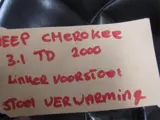 JEEP CHEROKEE
3.1 TD 2000
LINKER VOORSTOEL
STOEL VERWARMING